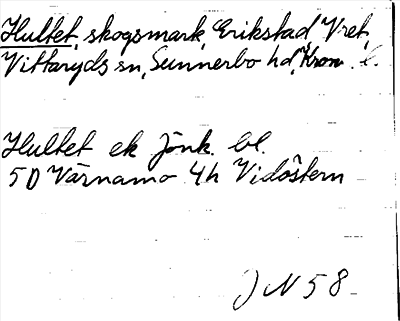 Hultet, skogsmark, Erikstad Vret,
Vittaryds sn, Sunnerbo hd, Kron. l.
Hultet ek Jönk. bl.
5D Värnamo 4h Vidöstern
J N 58